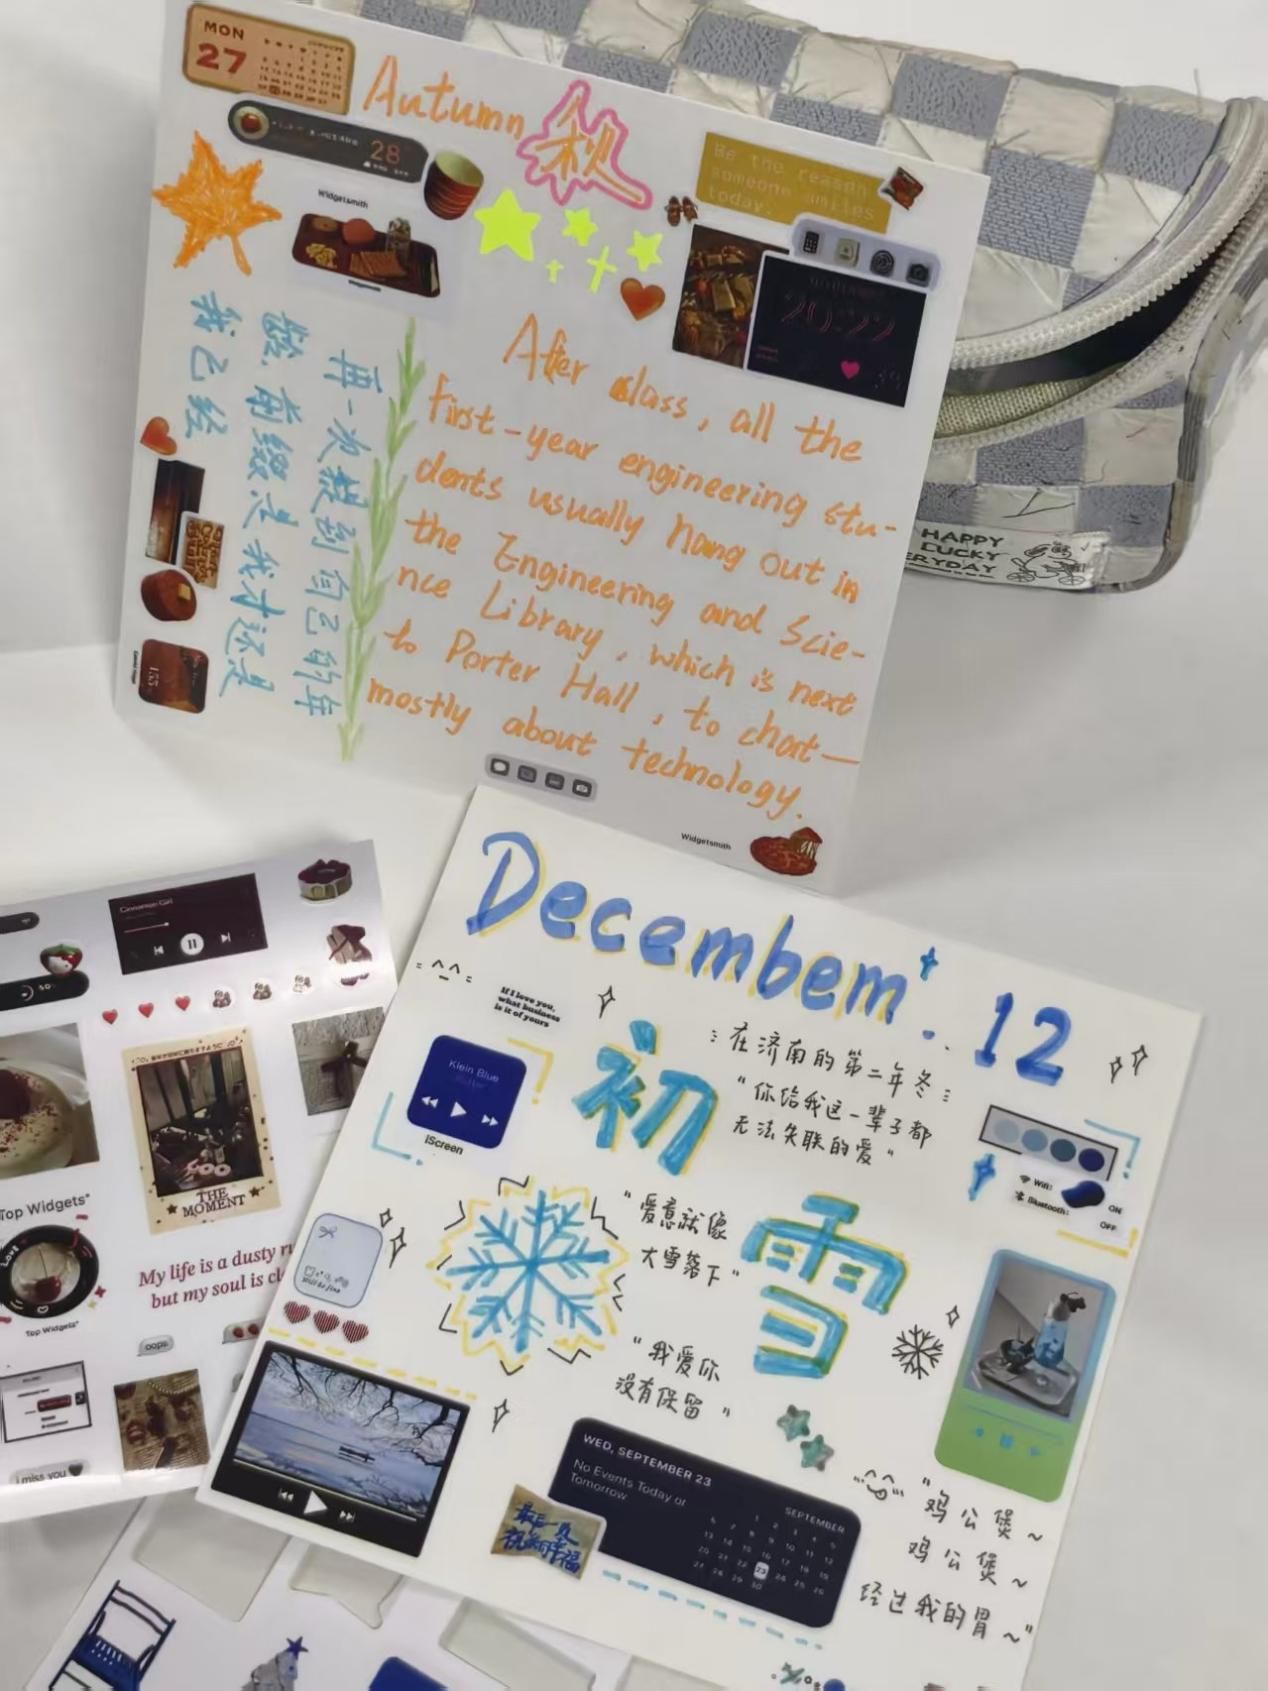 MON
27
Autumn 秋
28
Widgetsmith
Be the reason
someone smiles
today.
再一次提到自己的年
龄 前缀是我才还是
我已经
After class, all the
first-year engineering stu-
dents usually hang out in
the Engineering and Scie-
nce Library, which is next
to Porter Hall, to chat—
mostly about technology.
Widgetsmith
HAPPY
LUCKY
ERYDAY
Cinnamon Girl
THE
MOMENT
Top Widgets"
Top Widgets"
My life is a dusty
but my soul is
oops
i miss you
Decembem.. 12
If I love you,
what business
is it of yours
Klein Blue
iScreen
初
在济南的第二年冬
"你给我这一辈子都
无法失联的爱"
Wifi: ON
Bluetooth: OFF
"爱意就像
大雪落下"
雪
"我爱你
没有保留"
WED, SEPTEMBER 23
No Events Today or
Tomorrow
SEPTEMBER
23
最后一页
"鸡公煲~
鸡公煲~
经过我的胃~"